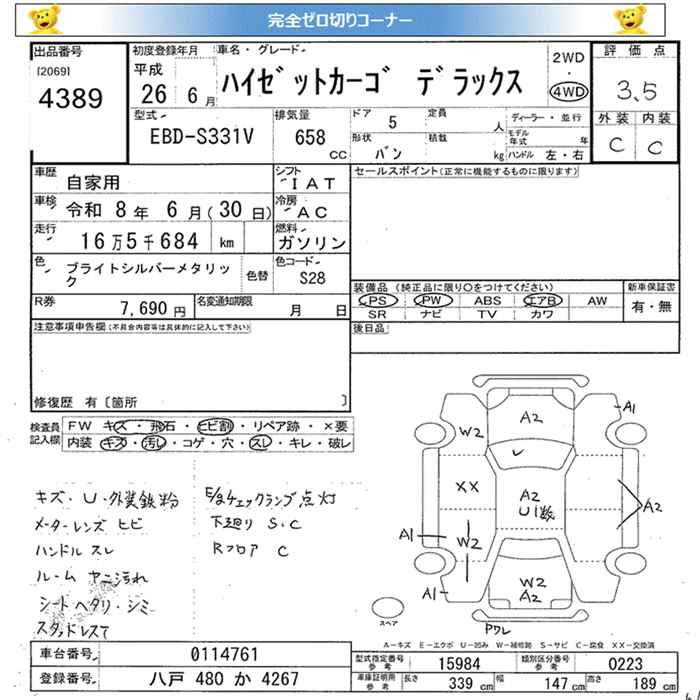 完全ゼロ切りコーナー
出品番号
[2069]
4389
初度登録年月
平成
26 6月
車名・グレード
ハイゼットカーゴ デラックス
2WD
・
4WD
評価点
3.5
外装 内装
C C
型式
EBD-S331V
排気量
658
CC
ドア
5
定員
人
形状
バン
積載
kg
ディーラー・並行
モデル年式
年
ハンドル 左・右
車歴
自家用
シフト
IAT
車検
令和 8年 6月(30日)
冷房
AC
走行
16万5千684 km
燃料
ガソリン
色
ブライトシルバーメタリック
色替
色コード
S28
R券
7,690 円
名変通知期限
月 日
セールスポイント(正常に機能するものに限ります)
装備品(純正品に限り○をつけてください)
PS PW ABS エアB AW
SR ナビ TV カワ
新車保証書
有・無
後日品
注意事項申告欄(不具合内容等は具体的に記入して下さい)
修復歴 有〔箇所 〕
検査員記入欄
FW キズ・飛石・ヒビ割・リペア跡・×要
内装 キズ・汚レ・コゲ・穴・スレ・キレ・破レ
キズ・U・外装鉄粉
メーターレンズ ヒビ
ハンドル スレ
ルーム ヤニ汚れ
シートヘタリ・シミ
スタッドレスT
E/gチェックランプ点灯
下廻り S・C
Rフロア C
A2
A1
W2
XX
A2
U1数
A2
A1
W2
A1
W2
A2
スペア
Pワレ
A-キズ E-エクボ U-凹み W-補修跡 S-サビ C-腐食 XX-交換済
車台番号
0114761
登録番号
八戸 480 か 4267
型式指定番号
参考
15984
類別区分番号
参考
0223
車庫証明用
参考
長さ
339 cm
幅
147 cm
高さ
189 cm